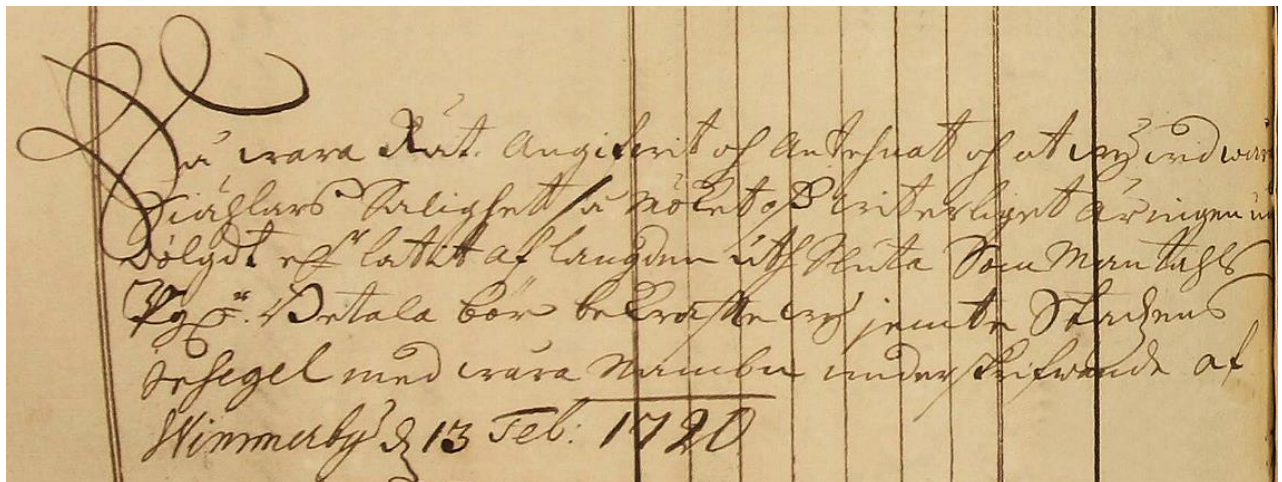 Så wara Rät. Angifwit och Antechnat och at wij wid wår
Siählars Salighet så möket oss witterliget är ingen un
dölgdt eller latit af langden uthsluta Som Mantahls
Pgr. Betala bör bekräffte wij jemte Stadzens
Insegel med wåra Nambn underskrifwande af
Wimmerby d 13 Feb: 1720